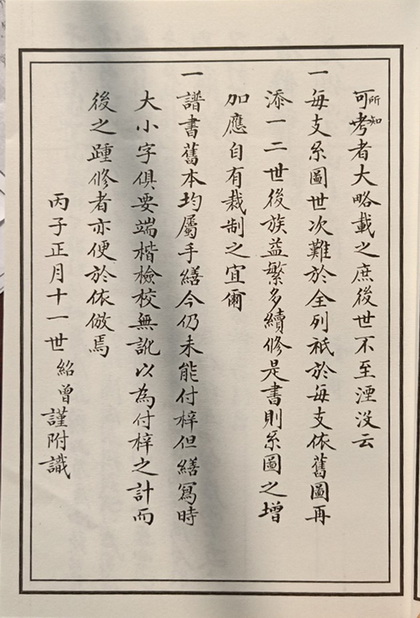 可所知考者大略載之庶後世不至湮没云
一每支系圖世次難於全列祇於每支依舊圖再
添一二世後族益繁多續修是書則系圖之增
加應自有裁制之宜爾
一譜書舊本均屬手繕今仍未能付梓但繕寫時
大小字俱要端楷檢校無訛以為付梓之計而
後之踵修者亦便於依倣焉
丙子正月十一世紹曾謹附識